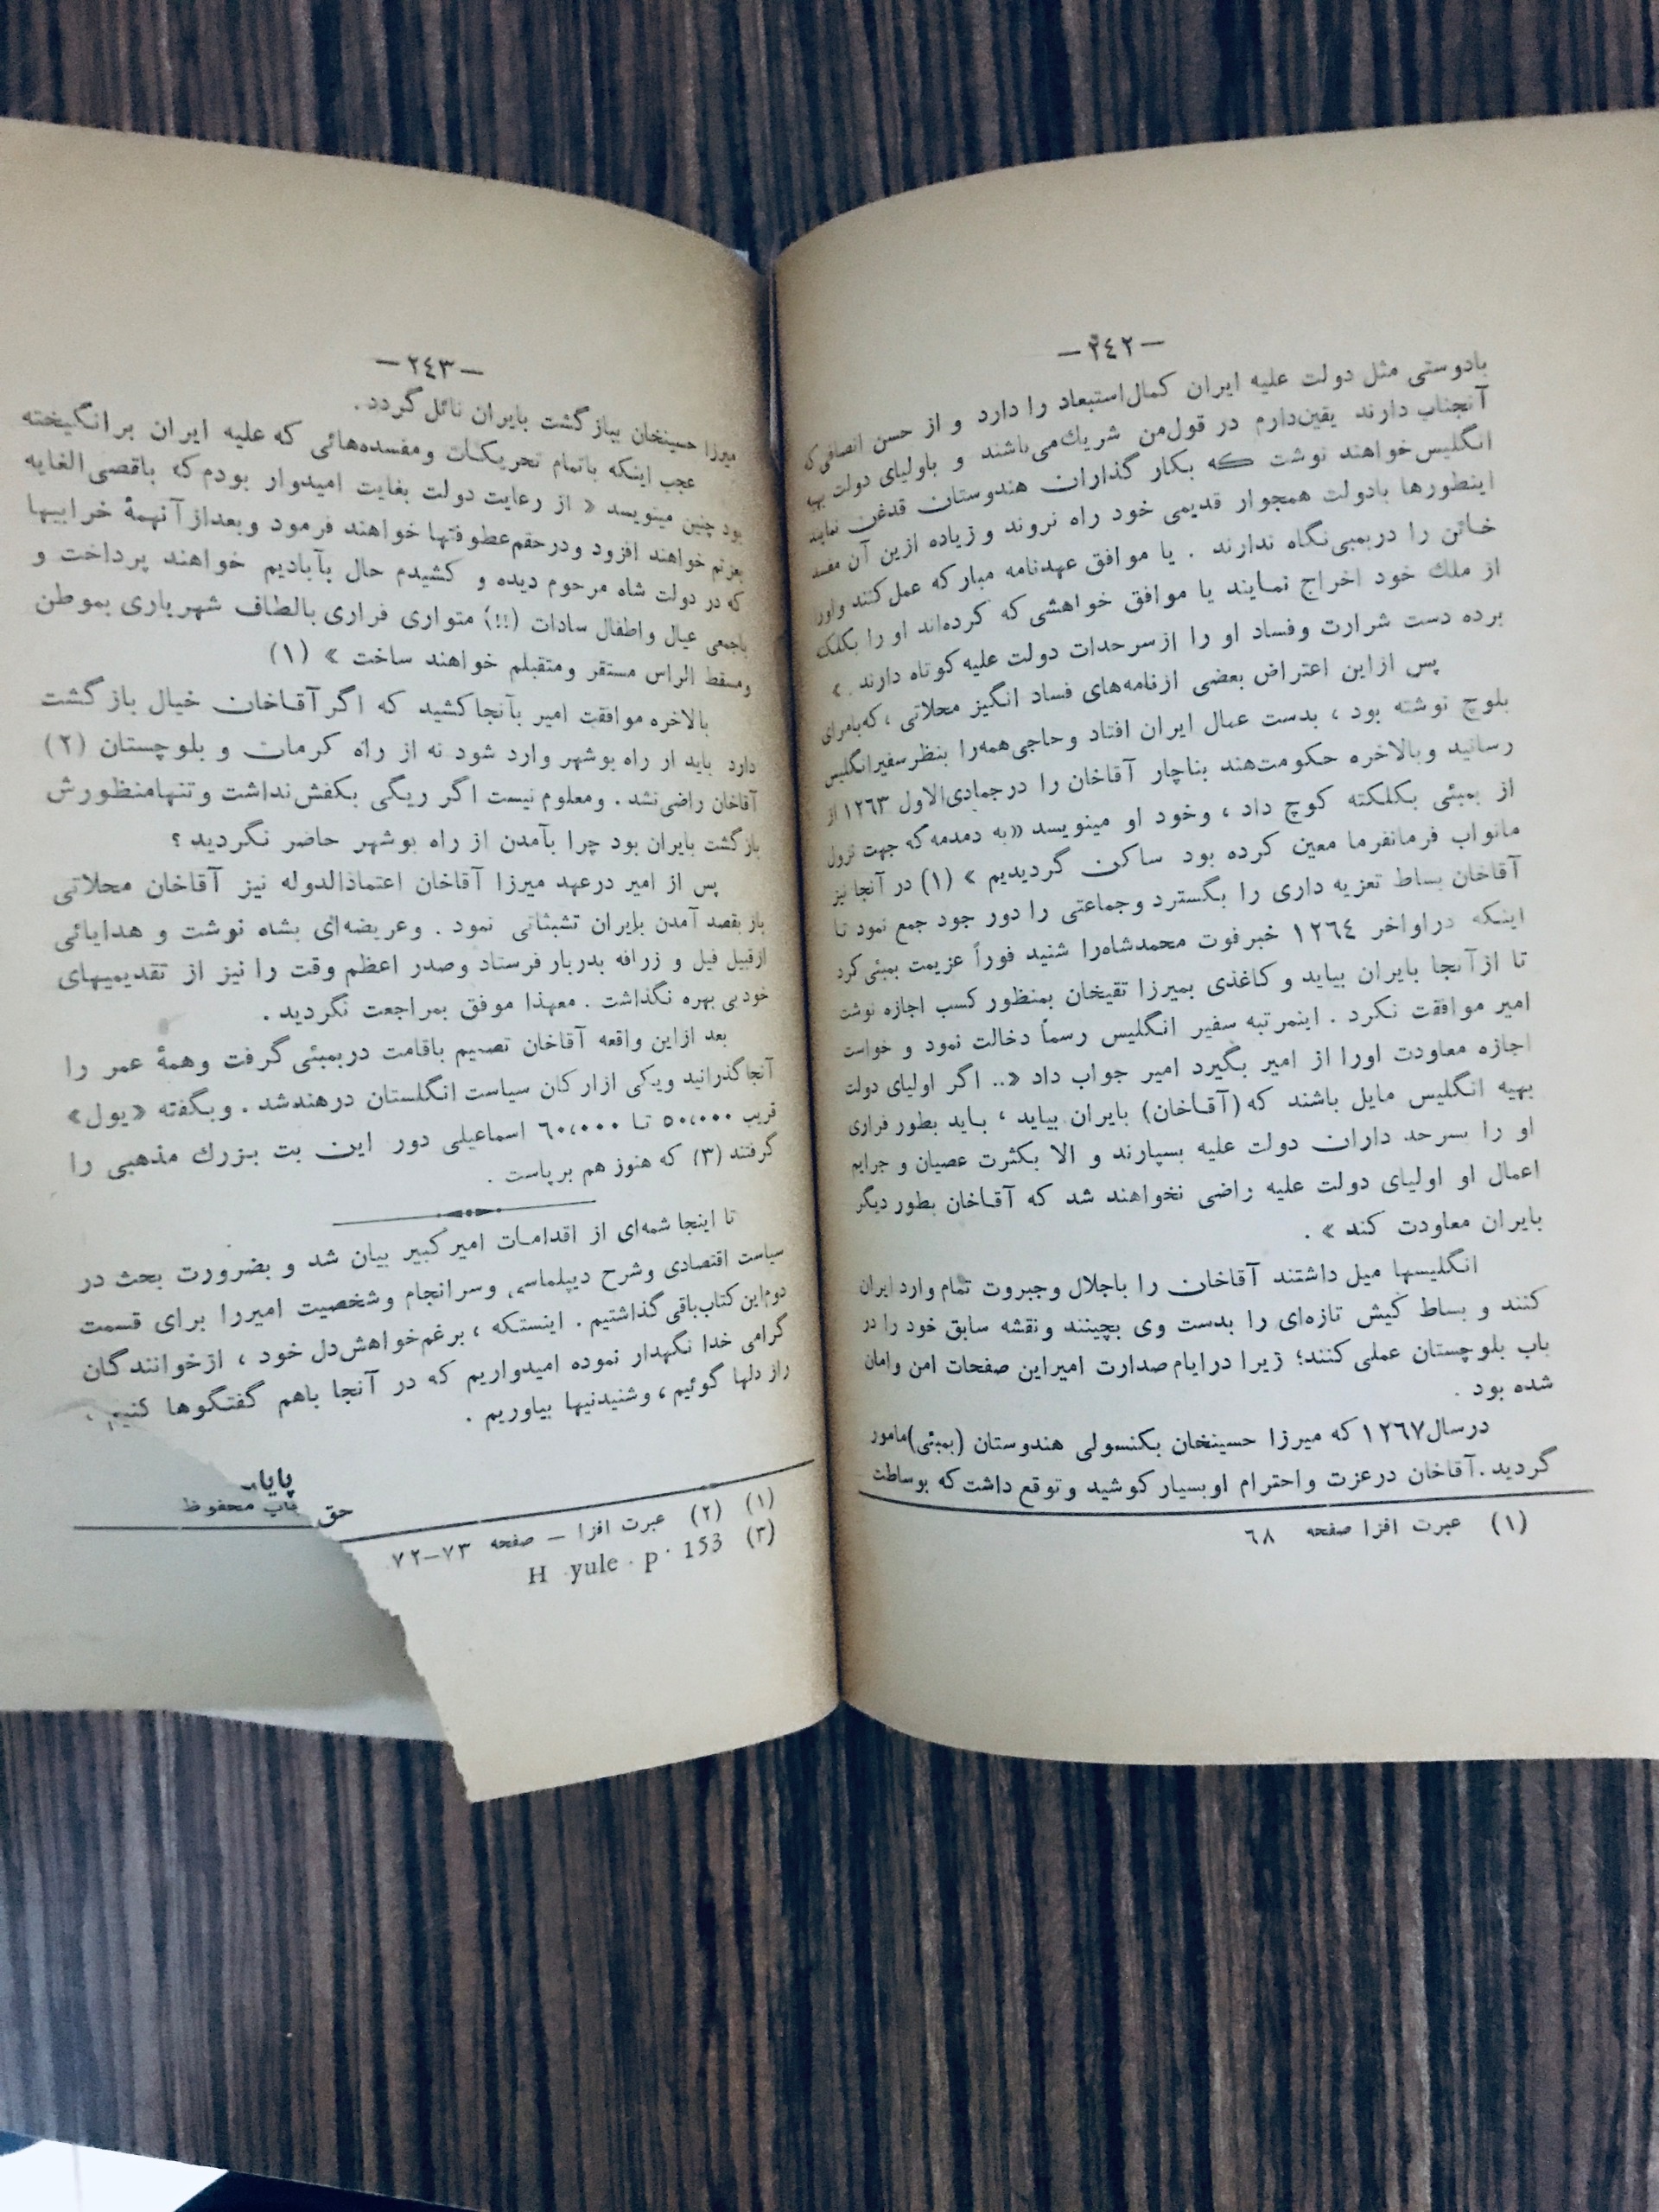 — ٢٤٢ —
بادوستی مثل دولت علیه ایران کمال‌استبعاد را دارد و از حسن انصافی که
آنجناب دارند یقین‌دارم در قول‌من شریك‌می‌باشند و باولیای دولت بهیه
انگلیس‌خواهند نوشت که بکار گذاران هندوستان قدغن نمایند
اینطورها بادولت همجوار قدیمی خود راه نروند و زیاده ازین آن مفسد
خائن را دربمبی‌نگاه ندارند . یا موافق عهدنامه مبارکه عمل‌کنند واورا
از ملك خود اخراج نمایند یا موافق خواهشی که کرده‌اند او را بکلکته
برده دست شرارت وفساد او را ازسرحدات دولت علیه‌کوتاه دارند . »
پس ازاین اعتراض بعضی ازنامه‌های فساد انگیز محلاتی ، که‌بامرای
بلوچ نوشته بود ، بدست عمال ایران افتاد وحاجی همه‌را بنظرسفیرانگلیس
رسانید وبالاخره حکومت‌هند بناچار آقاخان را درجمادی‌الاول ١٢٦٣ از
از بمبئی بکلکته کوچ داد ، وخود او مینویسد «به دمدمه‌که جهت نزول
مانواب فرمانفرما معین کرده بود ساکن گردیدیم » (١) در آنجا نیز
آقاخان بساط تعزیه داری را بگسترد وجماعتی را دور جود جمع نمود تا
اینکه دراواخر ١٢٦٤ خبرفوت محمدشاه‌را شنید فوراً عزیمت بمبئی کرد
تا ازآنجا بایران بیاید و کاغذی بمیرزا تقیخان بمنظور کسب اجازه نوشت
امیر موافقت نکرد . اینمرتبه سفیر انگلیس رسماً دخالت نمود و خواست
اجازه معاودت اورا از امیر بگیرد امیر جواب داد «.. اگر اولیای دولت
بهیه انگلیس مایل باشند که (آقاخان) بایران بیاید ، باید بطور فراری
او را بسرحد داران دولت علیه بسپارند و الا بکثرت عصیان و جرایم
اعمال او اولیای دولت علیه راضی نخواهند شد که آقاخان بطور دیگر
بایران معاودت کند » .
انگلیسها میل داشتند آقاخان را باجلال وجبروت تمام وارد ایران
کنند و بساط کیش تازه‌ای را بدست وی بچینند ونقشه سابق خود را در
باب بلوچستان عملی کنند؛ زیرا درایام صدارت امیراین صفحات امن وامان
شده بود .
درسال١٢٦٧ که میرزا حسینخان بکنسولی هندوستان (بمبئی) مامور
گردید. آقاخان درعزت واحترام اوبسیار کوشید وتوقع داشت که بوساطت
(١) عبرت افزا صفحه ٦٨
— ٢٤٣ —
میرزا حسینخان ببازگشت بایران نائل گردد .
عجب اینکه باتمام تحریکات ومفسده‌هائی که علیه ایران برانگیخته
بود چنین مینویسد « از رعایت دولت بغایت امیدوار بودم که باقصی‌الغایه
بعزتم خواهند افزود ودرحقم‌عطوفتها خواهند فرمود وبعدازآنهمهٔ خرابیها
که در دولت شاه مرحوم دیده و کشیدم حال بآبادیم خواهند پرداخت و
باجمعی عیال واطفال سادات (!!) متواری فراری بالطاف شهریاری بموطن
ومسقط الراس مستقر ومتقبلم خواهند ساخت » (١)
بالاخره موافقت امیر بآنجاکشید که اگرآقاخان خیال بازگشت
دارد باید ار راه بوشهر وارد شود نه از راه کرمان و بلوچستان (٢)
آقاخان راضی‌نشد . ومعلوم نیست اگر ریگی بکفش‌نداشت وتنهامنظورش
بازگشت بایران بود چرا بآمدن از راه بوشهر حاضر نگردید ؟
پس از امیر درعهد میرزا آقاخان اعتمادالدوله نیز آقاخان محلاتی
باز بقصد آمدن بایران تشبثاتی نمود . وعریضه‌ای بشاه نوشت و هدایائی
ازقبیل فیل و زرافه بدربار فرستاد وصدر اعظم وقت را نیز از تقدیمیهای
خودبی بهره نگذاشت . معهذا موفق بمراجعت نگردید .
بعد ازاین واقعه آقاخان تصمیم باقامت دربمبئی گرفت وهمهٔ عمر را
آنجاگذرانید ویکی ازارکان سیاست انگلستان درهندشد . وبگفته «یول»
قریب ٥٠،٠٠٠ تا ٦٠،٠٠٠ اسماعیلی دور این بت بزرك مذهبی را
گرفتند (٣) که هنوز هم برپاست .
تا اینجا شمه‌ای از اقدامات امیرکبیر بیان شد و بضرورت بحث در
سیاست اقتصادی وشرح دیپلماسی وسرانجام وشخصیت امیررا برای قسمت
دوم‌این کتاب‌باقی گذاشتیم . اینستکه ، برغم‌خواهش‌دل خود ، ازخوانندگان
گرامی خدا نگهدار نموده امیدواریم که در آنجا باهم گفتگوها کنیم ،
راز دلها گوئیم ، وشنیدنیها بیاوریم .
حق محفوظ
(١) (٢) عبرت افزا – صفحه ٧٣–٧٢
(٣) H . yule . p . 153